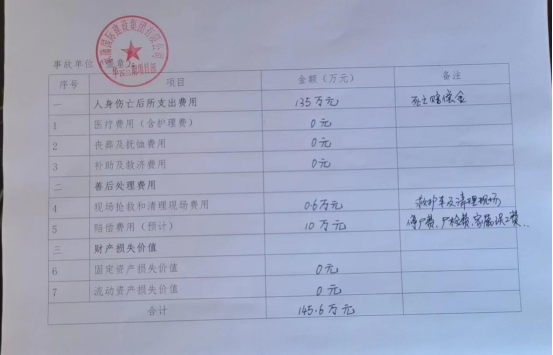 事故单位（盖章）：
国际建设集团有限公司
序号 项目 金额（万元） 备注
一 人身伤亡后所支出费用 135万元 死亡赔偿金
1 医疗费用（含护理费） 0元
2 丧葬及抚恤费用 0元
3 补助及救济费用 0元
二 善后处理费用
4 现场抢救和清理现场费用 0.6万元 救护车及清理现场
5 赔偿费用（预计） 10万元 停尸费、尸检费、家属误工费...
三 财产损失价值
6 固定资产损失价值 0元
7 流动资产损失价值 0元
合计 145.6万元